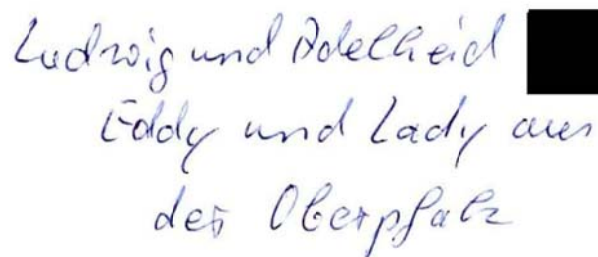 Ludwig und Adelheid
Eddy und Lady aus
der Oberpfalz